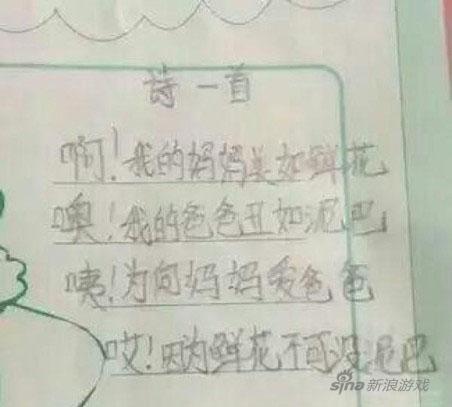 诗一首
啊！我的妈妈美如鲜花
噢！我的爸爸丑如泥巴
咦！为何妈妈爱爸爸
哎！因为鲜花不可没泥巴
sina新浪游戏